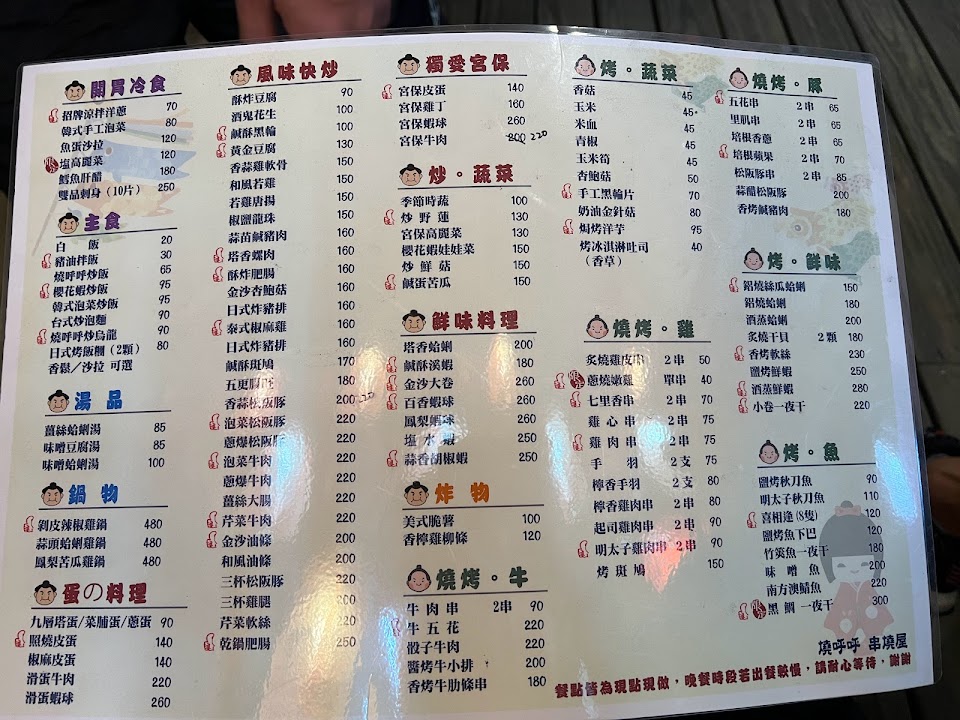 開胃冷食
招牌涼拌洋蔥 70
韓式手工泡菜 80
魚蛋沙拉 120
塩高麗菜 120
鱈魚肝醋 180
雙品刺身(10片) 250
主食
白飯 20
豬油拌飯 30
燒呼呼炒飯 65
櫻花蝦炒飯 95
韓式泡菜炒飯 95
台式炒泡麵 90
燒呼呼炒烏龍 90
日式烤飯糰(2顆) 80
香鬆/沙拉 可選
湯品
薑絲蛤蜊湯 85
味噌豆腐湯 85
味噌蛤蜊湯 100
鍋物
剝皮辣椒雞鍋 480
蒜頭蛤蜊雞鍋 480
鳳梨苦瓜雞鍋 480
蛋の料理
九層塔蛋/菜脯蛋/蔥蛋 90
照燒皮蛋 140
椒麻皮蛋 140
滑蛋牛肉 220
滑蛋蝦球 260
風味快炒
酥炸豆腐 90
酒鬼花生 100
鹹酥黑輪 100
黃金豆腐 130
香蒜雞軟骨 150
和風若雞 150
若雞唐揚 150
椒鹽龍珠 150
蒜苗鹹豬肉 160
塔香螺肉 160
酥炸肥腸 160
金沙杏鮑菇 160
日式炸豬排 160
泰式椒麻雞 160
日式炸豬排 160
鹹酥斑鳩 170
五更腸旺 180
香蒜松阪豚 200 220
泡菜松阪豚 220
蔥爆松阪豚 220
泡菜牛肉 220
蔥爆牛肉 220
薑絲大腸 220
芹菜牛肉 220
金沙油條 220
和風油條 220
三杯松阪豚 220
三杯雞腿 200
芹菜軟絲 220
乾鍋肥腸 250
獨愛宮保
宮保皮蛋 140
宮保雞丁 160
宮保蝦球 260
宮保牛肉 200 220
炒。蔬菜
季節時蔬 100
炒野蓮 130
宮保高麗菜 130
櫻花蝦娃娃菜 150
炒鮮菇 150
鹹蛋苦瓜 150
鮮味料理
塔香蛤蜊 200
鹹酥溪蝦 180
金沙大卷 260
百香蝦球 260
鳳梨蝦球 260
塩水蝦 250
蒜香胡椒蝦 250
炸物
美式脆薯 100
香檸雞柳條 120
燒烤。牛
牛肉串 2串 90
牛五花 220
骰子牛肉 220
醬烤牛小排 200
香烤牛肋條串 180
烤。蔬菜
香菇 45
玉米 45
米血 45
青椒 45
玉米筍 45
杏鮑菇 50
手工黑輪片 70
奶油金針菇 80
焗烤洋芋 95
烤冰淇淋吐司 40
(香草)
燒烤。雞
炙燒雞皮串 2串 50
蔥燒嫩雞 單串 40
七里香串 2串 70
雞心串 2串 75
雞肉串 2串 75
手羽 2支 75
檸香手羽 2支 80
檸香雞肉串 2串 80
起司雞肉串 2串 90
明太子雞肉串 2串 90
烤斑鳩 150
燒烤。豚
五花串 2串 65
里肌串 2串 65
培根香蔥 2串 65
培根蘋果 2串 70
松阪豚串 2串 85
蒜醋松阪豚 200
香烤鹹豬肉 180
烤。鮮味
鋁燒絲瓜蛤蜊 150
鋁燒蛤蜊 180
酒蒸蛤蜊 200
炙燒干貝 2顆 180
香烤軟絲 230
鹽烤鮮蝦 250
酒蒸鮮蝦 280
小卷一夜干 220
烤。魚
鹽烤秋刀魚 90
明太子秋刀魚 110
喜相逢(8隻) 120
鹽烤魚下巴 120
竹筴魚一夜干 180
味噌魚 200
南方澳鯖魚 220
黑鯛一夜干 300
燒呼呼 串燒屋
餐點皆為現點現做，晚餐時段若出餐較慢，請耐心等待，謝謝